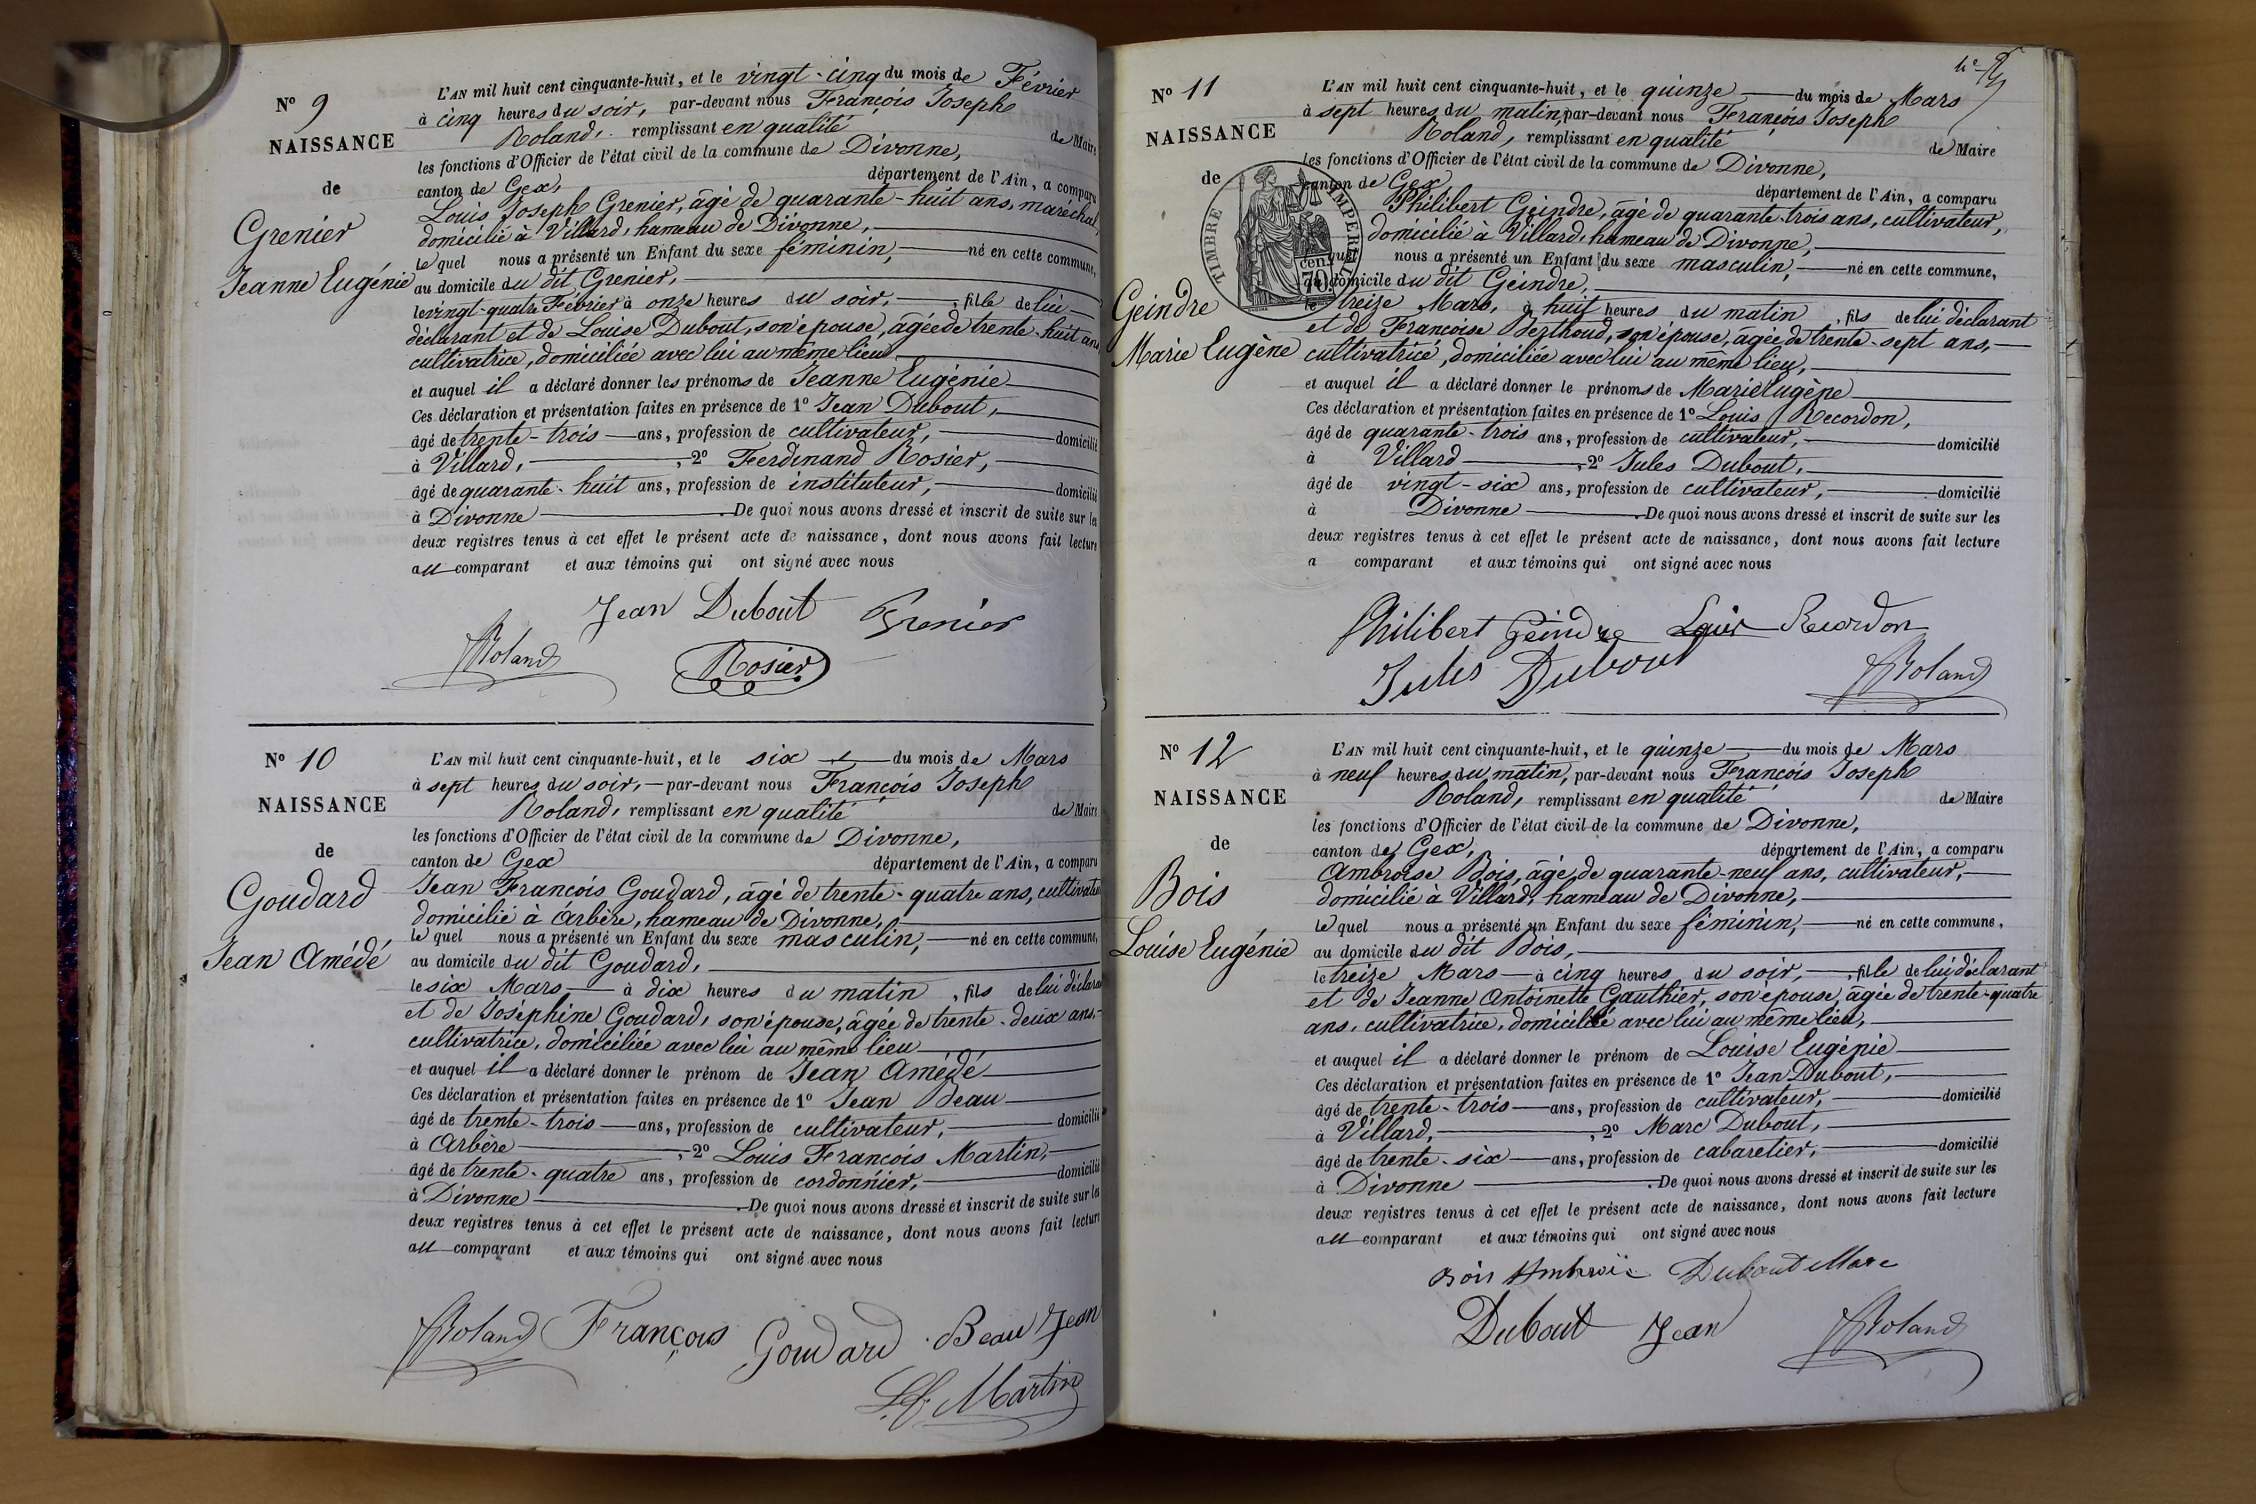 N° 9
NAISSANCE
de
Grenier
Jeanne Eugénie
L'AN mil huit cent cinquante-huit, et le vingt-cinq du mois de Février
à cinq heures du soir, par-devant nous François Joseph
Roland, remplissant en qualité de Maire
les fonctions d'Officier de l'état civil de la commune de Divonne,
canton de Gex, département de l'Ain, a comparu
Louis Joseph Grenier, âgé de quarante-huit ans, maréchal,
domicilié à Villard, hameau de Divonne,
lequel nous a présenté un Enfant du sexe féminin, né en cette commune,
au domicile du dit Grenier,
le vingt-quatre Février à onze heures du soir, fille de lui
déclarant et de Louise Dubout, son épouse, âgée de trente-huit ans
cultivatrice, domiciliée avec lui au même lieu
et auquel il a déclaré donner les prénoms de Jeanne Eugénie
Ces déclaration et présentation faites en présence de 1° Jean Dubout,
âgé de trente-trois ans, profession de cultivateur, domicilié
à Villard, 2° Ferdinand Rosier,
âgé de quarante-huit ans, profession de instituteur, domicilié
à Divonne. De quoi nous avons dressé et inscrit de suite sur les
deux registres tenus à cet effet le présent acte de naissance, dont nous avons fait lecture
au comparant et aux témoins qui ont signé avec nous
Jean Dubout Grenier
Roland Rosier
N° 10
NAISSANCE
de
Goudard
Jean Amédé
L'AN mil huit cent cinquante-huit, et le six du mois de Mars
à sept heures du soir, par-devant nous François Joseph
Roland, remplissant en qualité de Maire
les fonctions d'Officier de l'état civil de la commune de Divonne,
canton de Gex département de l'Ain, a comparu
Jean François Goudard, âgé de trente-quatre ans, cultivate
domicilié à Arbère, hameau de Divonne,
lequel nous a présenté un Enfant du sexe masculin, né en cette commune,
au domicile du dit Goudard,
le six Mars à dix heures du matin, fils de lui déclara
et de Joséphine Goudard, son épouse, âgée de trente-deux ans,
cultivatrice, domiciliée avec lui au même lieu
et auquel il a déclaré donner le prénom de Jean Amédé
Ces déclaration et présentation faites en présence de 1° Jean Beau
âgé de trente-trois ans, profession de cultivateur, domicilié
à Arbère, 2° Louis François Martin,
âgé de trente-quatre ans, profession de cordonnier, domicilié
à Divonne. De quoi nous avons dressé et inscrit de suite sur les
deux registres tenus à cet effet le présent acte de naissance, dont nous avons fait lecture
au comparant et aux témoins qui ont signé avec nous
Roland François Goudard Beau Jean
L.f. Martin
N° 11
NAISSANCE
de
TIMBRE IMPERIAL
70 cen.
Geindre
Marie Eugène
L'AN mil huit cent cinquante-huit, et le quinze du mois de Mars
à sept heures du matin, par-devant nous François Joseph
Roland, remplissant en qualité de Maire
les fonctions d'Officier de l'état civil de la commune de Divonne,
canton de Gex département de l'Ain, a comparu
Philibert Geindre, âgé de quarante-trois ans, cultivateur,
domicilié à Villard, hameau de Divonne,
lequel nous a présenté un Enfant du sexe masculin, né en cette commune,
au domicile du dit Geindre,
le treize Mars, à huit heures du matin, fils de lui déclarant
et de Françoise Berthoud, son épouse, âgée de trente-sept ans,
cultivatrice, domiciliée avec lui au même lieu,
et auquel il a déclaré donner le prénoms de Marie Eugène
Ces déclaration et présentation faites en présence de 1° Louis Recordon,
âgé de quarante-trois ans, profession de cultivateur, domicilié
à Villard, 2° Jules Dubout,
âgé de vingt-six ans, profession de cultivateur, domicilié
à Divonne. De quoi nous avons dressé et inscrit de suite sur les
deux registres tenus à cet effet le présent acte de naissance, dont nous avons fait lecture
a comparant et aux témoins qui ont signé avec nous
Philibert Geindre Louis Recordon
Jules Dubout Roland
N° 12
NAISSANCE
de
Bois
Louise Eugénie
L'AN mil huit cent cinquante-huit, et le quinze du mois de Mars
à neuf heures du matin, par-devant nous François Joseph
Roland, remplissant en qualité de Maire
les fonctions d'Officier de l'état civil de la commune de Divonne,
canton de Gex, département de l'Ain, a comparu
Ambroise Bois, âgé de quarante-neuf ans, cultivateur,
domicilié à Villard, hameau de Divonne,
lequel nous a présenté un Enfant du sexe féminin, né en cette commune,
au domicile du dit Bois,
le treize Mars à cinq heures du soir, fille de lui déclarant
et de Jeanne Antoinette Gauthier, son épouse, âgée de trente-quatre
ans, cultivatrice, domiciliée avec lui au même lieu,
et auquel il a déclaré donner le prénom de Louise Eugénie
Ces déclaration et présentation faites en présence de 1° Jean Dubout,
âgé de trente-trois ans, profession de cultivateur, domicilié
à Villard, 2° Marc Dubout,
âgé de trente-six ans, profession de cabaretier, domicilié
à Divonne. De quoi nous avons dressé et inscrit de suite sur les
deux registres tenus à cet effet le présent acte de naissance, dont nous avons fait lecture
au comparant et aux témoins qui ont signé avec nous
Bois Ambroise Dubout Marc
Dubout Jean Roland